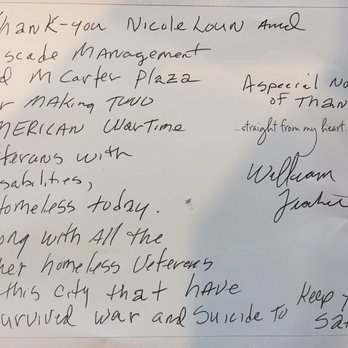 Thank-you Nicole Loun and
scade Management
d McCarter Plaza
r Making Two
American Wartime
eterans with
sabilities,
Homeless today.
ong with All the
her homeless Veterans
this city that have
urvived war and Suicide to Keep
A special No
of Than
...straight from my heart.
William